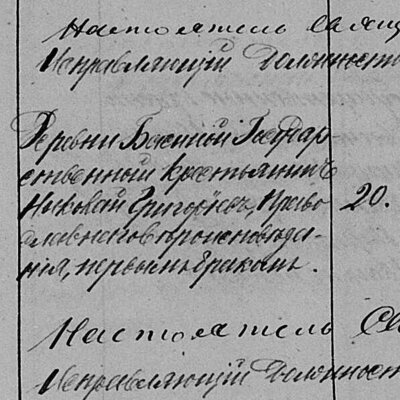 Настоятель Свящ
Исправляющій Должность
Деревни Государ
ственный крестьянинъ
Николай Григорьевъ, Право 20.
славнаго вѣроисповѣда-
нія, первымъ бракомъ.
Настоятель Св
Исправляющій Должност